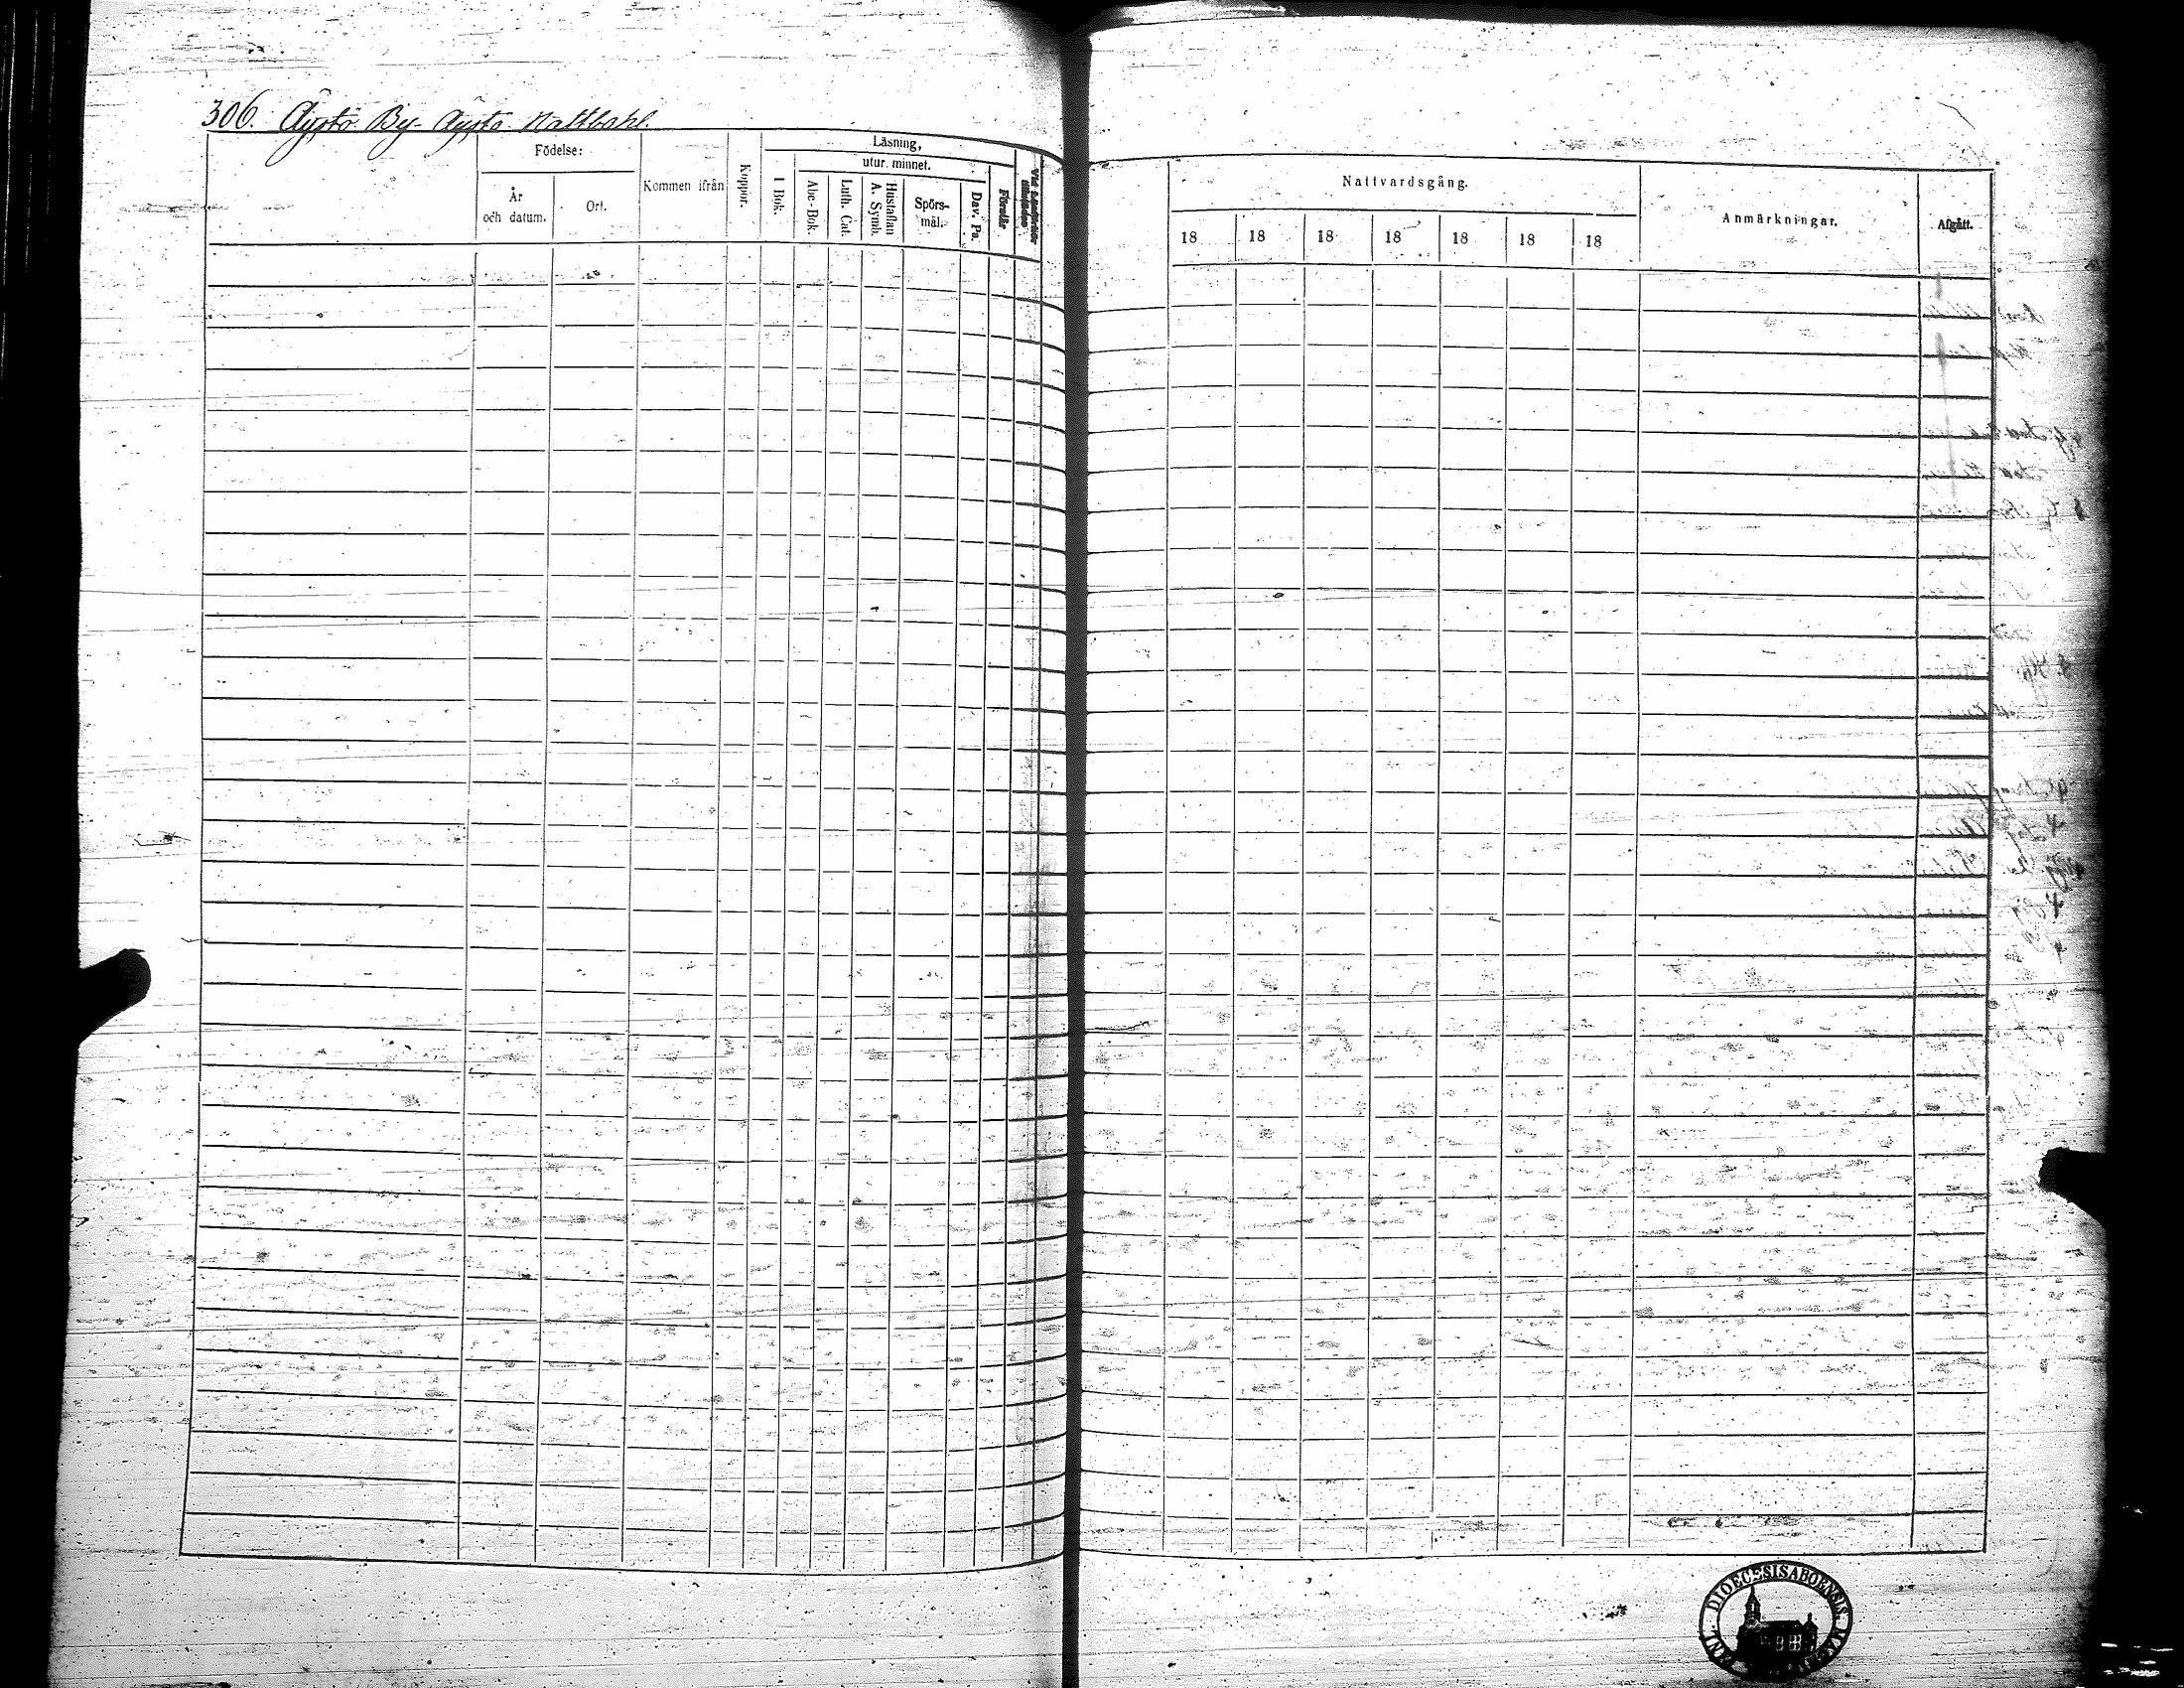 306. Äystö By Äystö Kallbahl.
Födelse:
Läsning,
utur minnet.
Nattvardsgång.
År och datum.
Ort.
Kommen ifrån
Koppor.
I Bok.
Abc-Bok.
Luth. Cat.
Hustaflan A. Symb.
Spörs-mål.
Dav. Ps.
Förstår
18 18 18 18 18 18 18
Anmärkningar.
Afgått.
DIOECESIS ABOENSIS